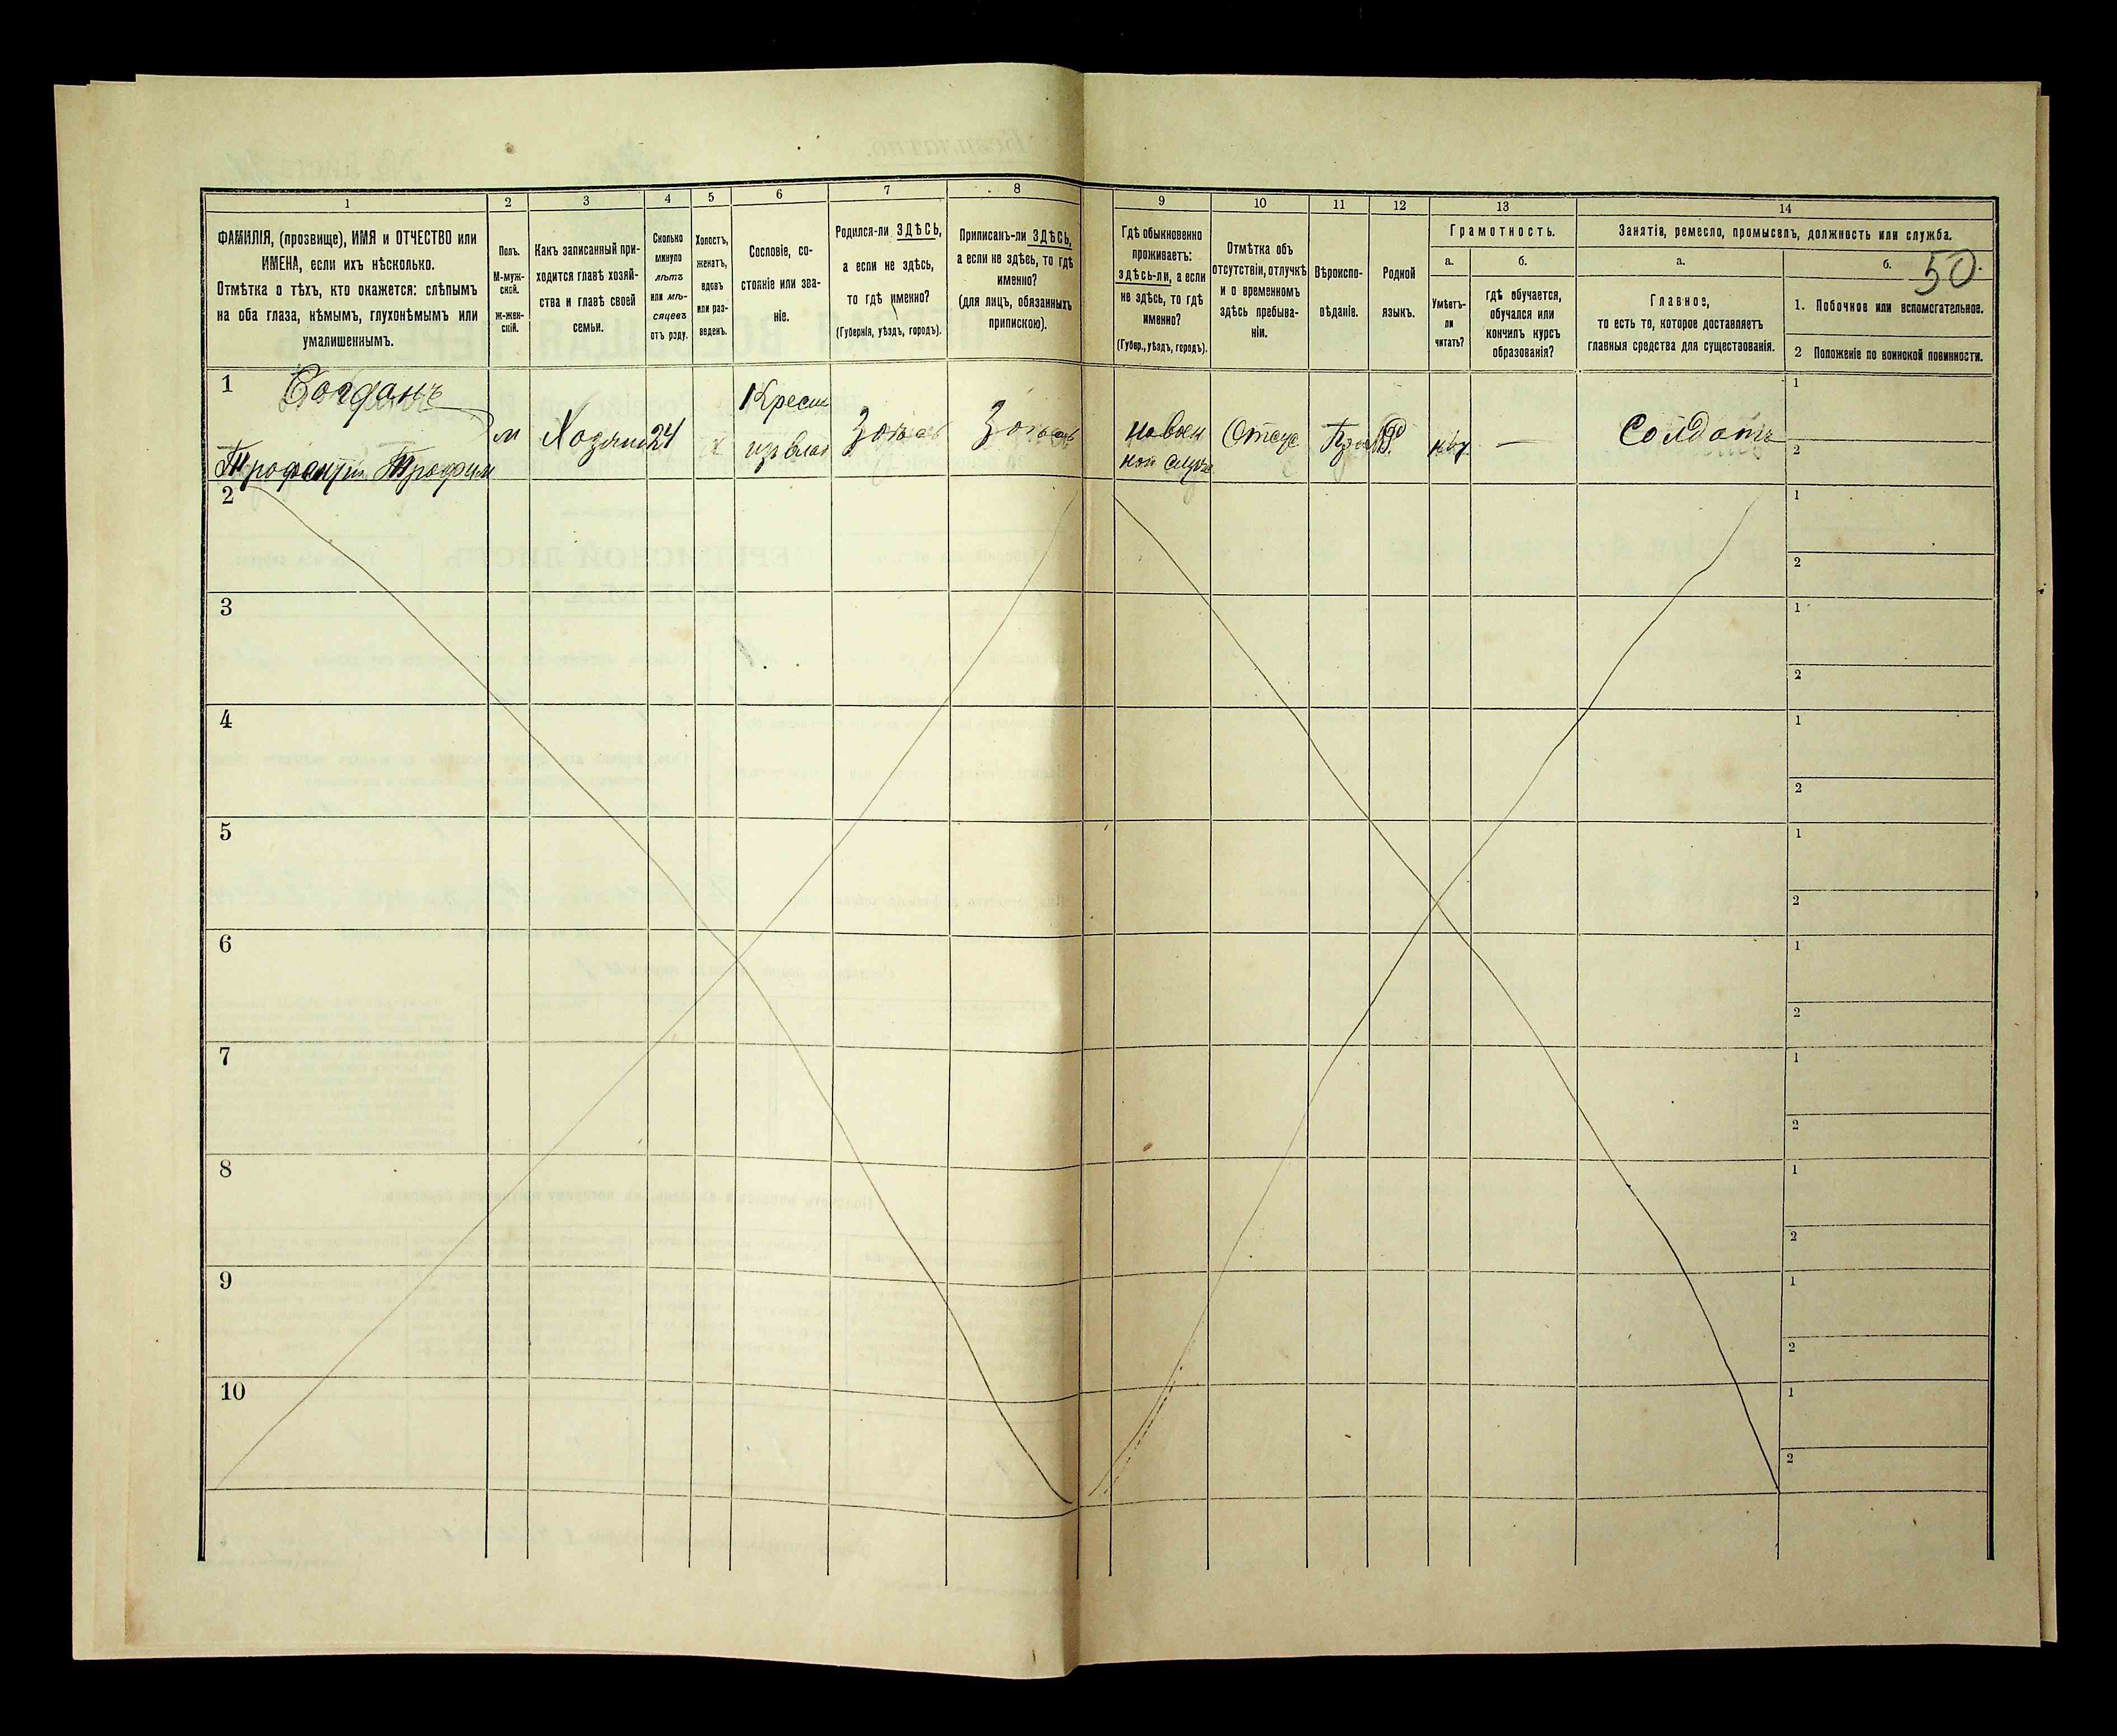 50.
1 2 3 4 5 6 7 8 9 10 11 12 13 14
ФАМИЛІЯ, (прозвище), ИМЯ и ОТЧЕСТВО или
ИМЕНА, если ихъ нѣсколько.
Отмѣтка о тѣхъ, кто окажется: слѣпымъ
на оба глаза, нѣмымъ, глухонѣмымъ или
умалишеннымъ.
Полъ.
М-муж-
ской.
Ж-жен-
скій.
Какъ записанный при-
ходится главѣ хозяй-
ства и главѣ своей
семьи.
Сколько
минуло
лѣтъ
или мѣ-
сяцевъ
отъ роду.
Холостъ,
женатъ,
вдовъ
или раз-
веденъ.
Сословіе, со-
стояніе или зва-
ніе.
Родился-ли ЗДѢСЬ,
а если не здѣсь,
то гдѣ именно?
(Губернія, уѣздъ, городъ).
Приписанъ-ли ЗДѢСЬ,
а если не здѣсь, то гдѣ
именно?
(для лицъ, обязанныхъ
припискою).
Гдѣ обыкновенно
проживаетъ:
здѣсь-ли, а если
не здѣсь, то гдѣ
именно?
(Губер., уѣздъ, городъ).
Отмѣтка объ
отсутствіи, отлучкѣ
и о временномъ
здѣсь пребыва-
ніи.
Вѣроиспо-
вѣданіе.
Родной
языкъ.
Грамотность.
а.
Умѣетъ-
ли
читать?
б.
гдѣ обучается,
обучался или
кончилъ курсъ
образованія?
Занятія, ремесло, промыселъ, должность или служба.
а.
Главное,
то есть то, которое доставляетъ
главныя средства для существованія.
б.
1. Побочное или вспомогательное.
2 Положеніе по воинской повинности.
1
Богданъ
Трофим
м
Хозяин
24
х
Крест
из влад
на воен
ной служ
Отсут
Солдатъ
1
2
2
1
2
3
1
2
4
1
2
5
1
2
6
1
2
7
1
2
8
1
2
9
1
2
10
1
2